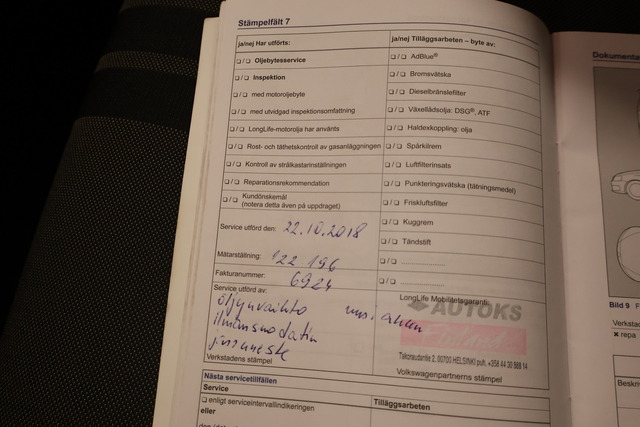 Stämpelfält 7
ja/nej Har utförts:
ja/nej Tilläggsarbeten – byte av:
❏/❏ Oljebytesservice
❏/❏ AdBlue®
❏/❏ Inspektion
❏/❏ Bromsvätska
❏/❏ med motoroljebyte
❏/❏ Dieselbränslefilter
❏/❏ med utvidgad inspektionsomfattning
❏/❏ Växellådsolja: DSG®, ATF
❏/❏ LongLife-motorolja har använts
❏/❏ Haldexkoppling: olja
❏/❏ Rost- och täthetskontroll av gasanläggningen
❏/❏ Spärkilrem
❏/❏ Kontroll av strålkastarinställningen
❏/❏ Luftfilterinsats
❏/❏ Reparationsrekommendation
❏/❏ Punkteringsvätska (tätningsmedel)
❏/❏ Kundönskemål
(notera detta även på uppdraget)
❏/❏ Friskluftsfilter
❏/❏ Kuggrem
Service utförd den: 22.10.2018
❏/❏ Tändstift
❏/❏ ....................
Mätarställning: 122 196
❏/❏ ....................
Fakturanummer: 6924
Service utförd av:
LongLife Mobilitetsgaranti:
öljynvaihto
AUTOKS
ilmansuodatin
jousineste
Takoraudantie 2, 00700 HELSINKI puh. +358 44 30 888 14
Verkstadens stämpel
Volkswagenpartnerns stämpel
Nästa servicetillfällen
Service
Tilläggsarbeten
❏ enligt serviceintervallindikeringen
eller
Dokumenta
Bild 9 F
Verkstad
× repa
Beskri